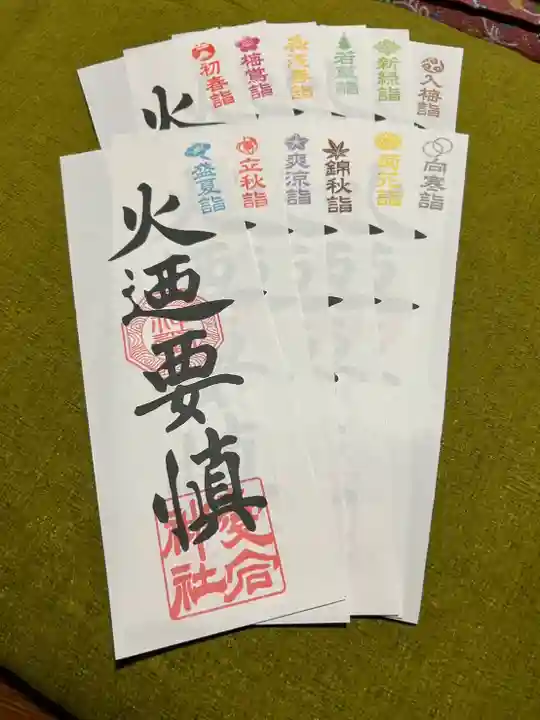 初春詣
梅鶯詣
浅春詣
若夏詣
新緑詣
入梅詣
火
盛夏詣
立秋詣
爽涼詣
錦秋詣
菊花詣
向寒詣
火迺要慎
愛宕
神社